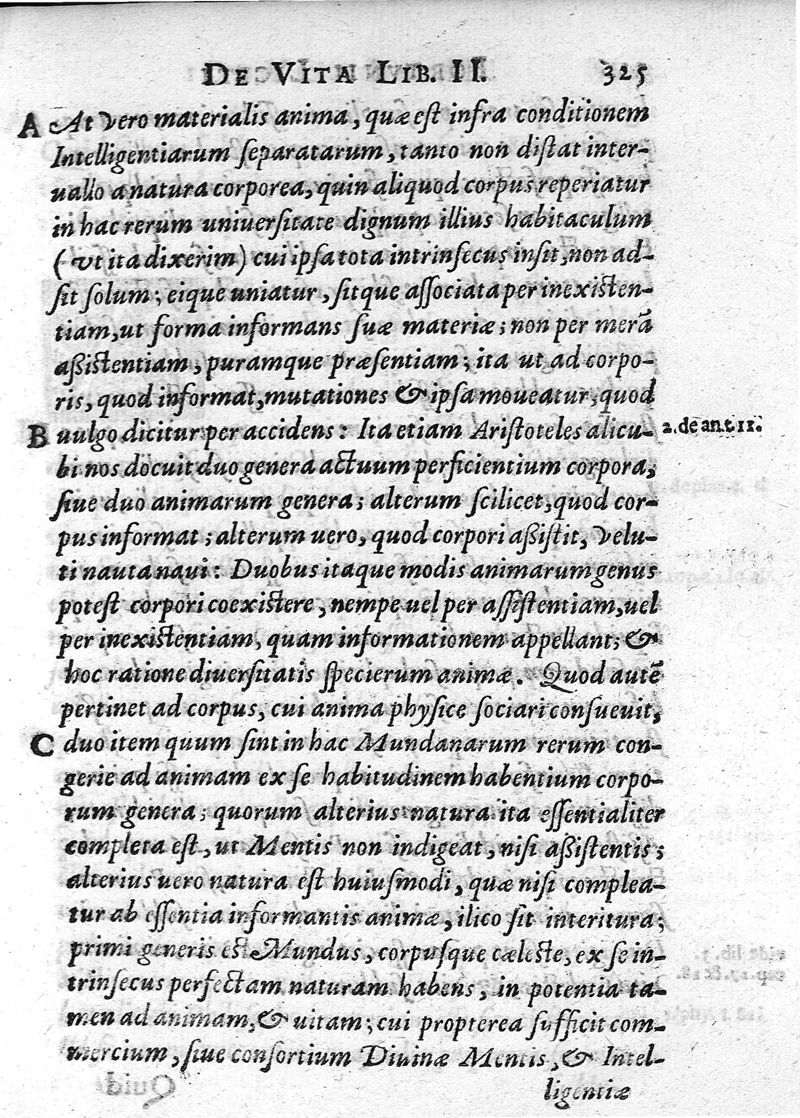 DE VITA LIB. II. 325
A At vero materialis anima, quæ est infra conditionem
Intelligentiarum separatarum, tanto non distat inter-
uallo a natura corporea, quin aliquod corpus reperiatur
in hac rerum uniuersitate dignum illius habitaculum
(vt ita dixerim) cui ipsa tota intrinsecus insit, non ad-
sit solum; eique uniatur, sitque associata per inexisten-
tiam, ut forma informans suæ materiæ; non per merã
aßistentiam, puramque præsentiam; ita ut ad corpo-
ris, quod informat, mutationes & ipsa moueatur, quod
B uulgo dicitur per accidens: Ita etiam Aristoteles alicu- 2. de ant. 11.
bi nos docuit duo genera actuum perficientium corpora,
siue duo animarum genera; alterum scilicet, quod cor-
pus informat; alterum uero, quod corpori aßistit, velu-
ti nauta naui: Duobus itaque modis animarum genus
potest corpori coexistere, nempe uel per assistentiam, uel
per inexistentiam, quam informationem appellant; &
hoc ratione diuersitatis specierum animæ. Quod autẽ
pertinet ad corpus, cui anima physice sociari consueuit,
C duo item quum sint in hac Mundanarum rerum con-
gerie ad animam ex se habitudinem habentium corpo-
rum genera; quorum alterius natura ita essentialiter
completa est, ut Mentis non indigeat, nisi aßistentis;
alterius uero natura est huiusmodi, quæ nisi complea-
tur ab essentia informantis animæ, ilico sit interitura;
primi generis est Mundus, corpusque cæleste, ex se in-
trinsecus perfectam naturam habens, in potentia ta-
men ad animam, & uitam; cui propterea sufficit com-
mercium, siue consortium Diuinæ Mentis, & Intel-
ligentiæ